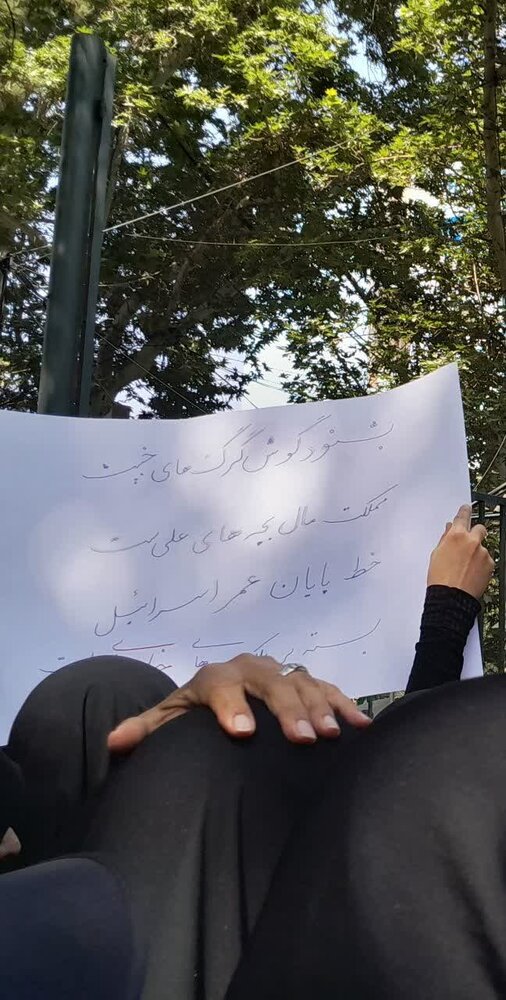 بشنود گوش گرگ های خبیث
مملکت مال بچه های علی ست
خط پایان عمر اسرائیل
بسته بر